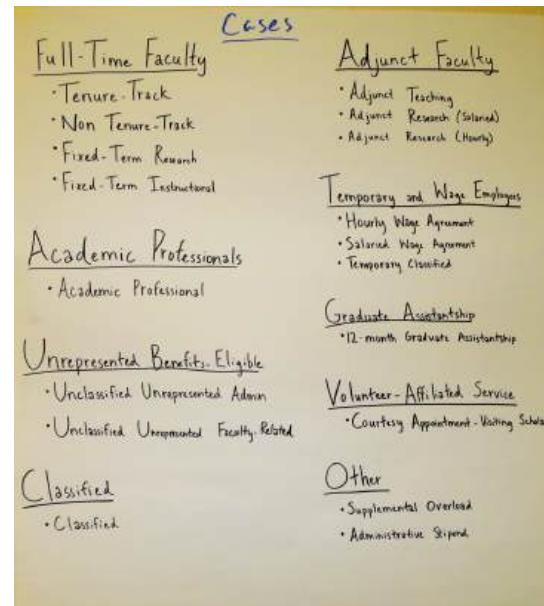 Cases
Full-Time Faculty
• Tenure-Track
• Non Tenure-Track
• Fixed-Term Research
• Fixed-Term Instructional
Academic Professionals
• Academic Professional
Unrepresented Benefits-Eligible
• Unclassified Unrepresented Admin
• Unclassified Unrepresented Faculty-Related
Classified
• Classified
Adjunct Faculty
• Adjunct Teaching
• Adjunct Research (Salaried)
• Adjunct Research (Hourly)
Temporary and Wage Employees
• Hourly Wage Agreement
• Salaried Wage Agreement
• Temporary Classified
Graduate Assistantship
• 12-month Graduate Assistantship
Volunteer-Affiliated Service
• Courtesy Appointment-Visiting Schola
Other
• Supplemental Overload
• Administrative Stipend